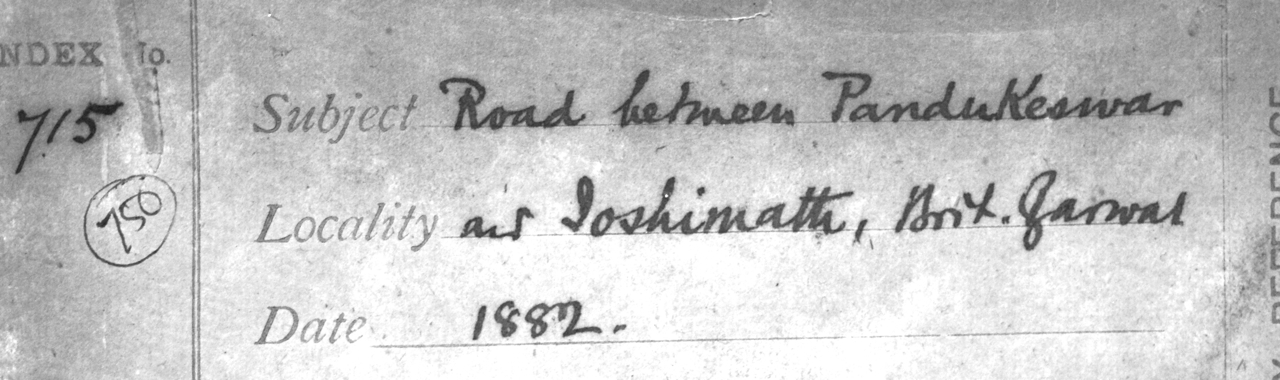 NDEX No.
715
750
Subject Road between Pandukeswar
Locality and Joshimath, Brit. Garwal
Date 1882.
REFERENCE